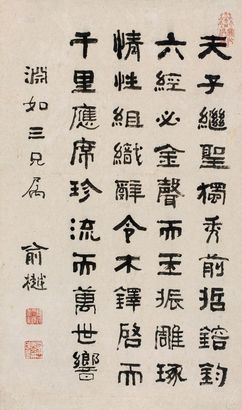 夫子繼聖獨秀前哲鎔鈞
六經必金聲而玉振雕琢
情性組織辭令木鐸啓而
千里應席珍流而萬世響
淵如三兄属
俞樾